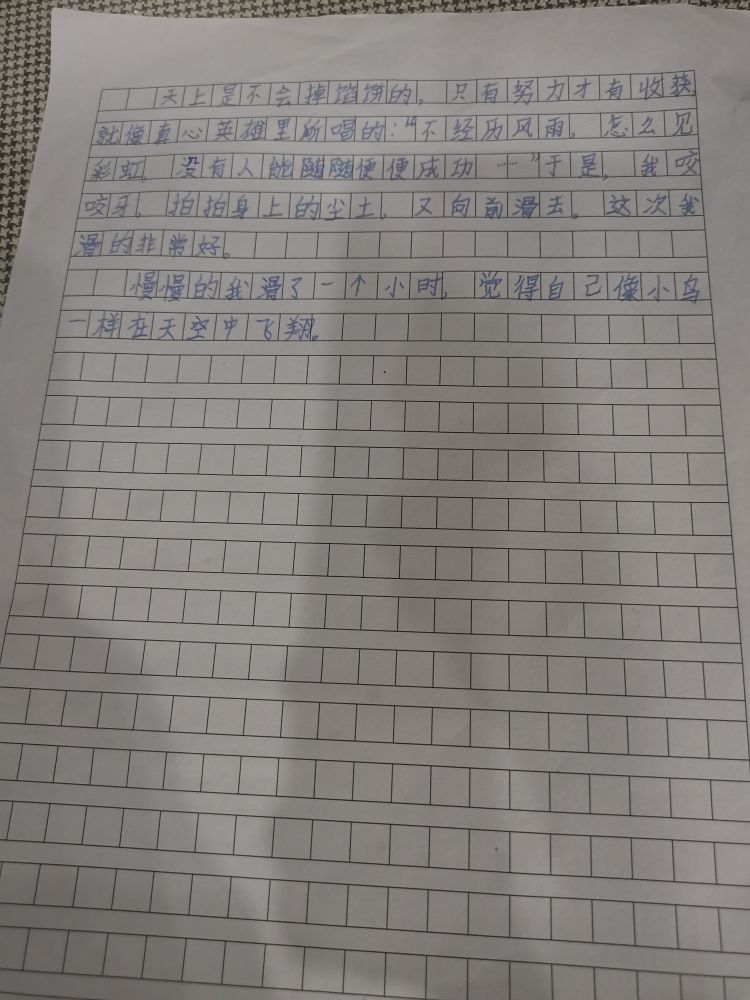 天上是不会掉馅饼的，只有努力才有收获，
就像真心英雄里所唱的：“不经历风雨，怎么见
彩虹，没有人能随随便便成功……”于是，我咬
咬牙，拍拍身上的尘土，又向前滑去，这次我
滑的非常好。
慢慢的我滑了一个小时，觉得自己像小鸟
一样在天空中飞翔。